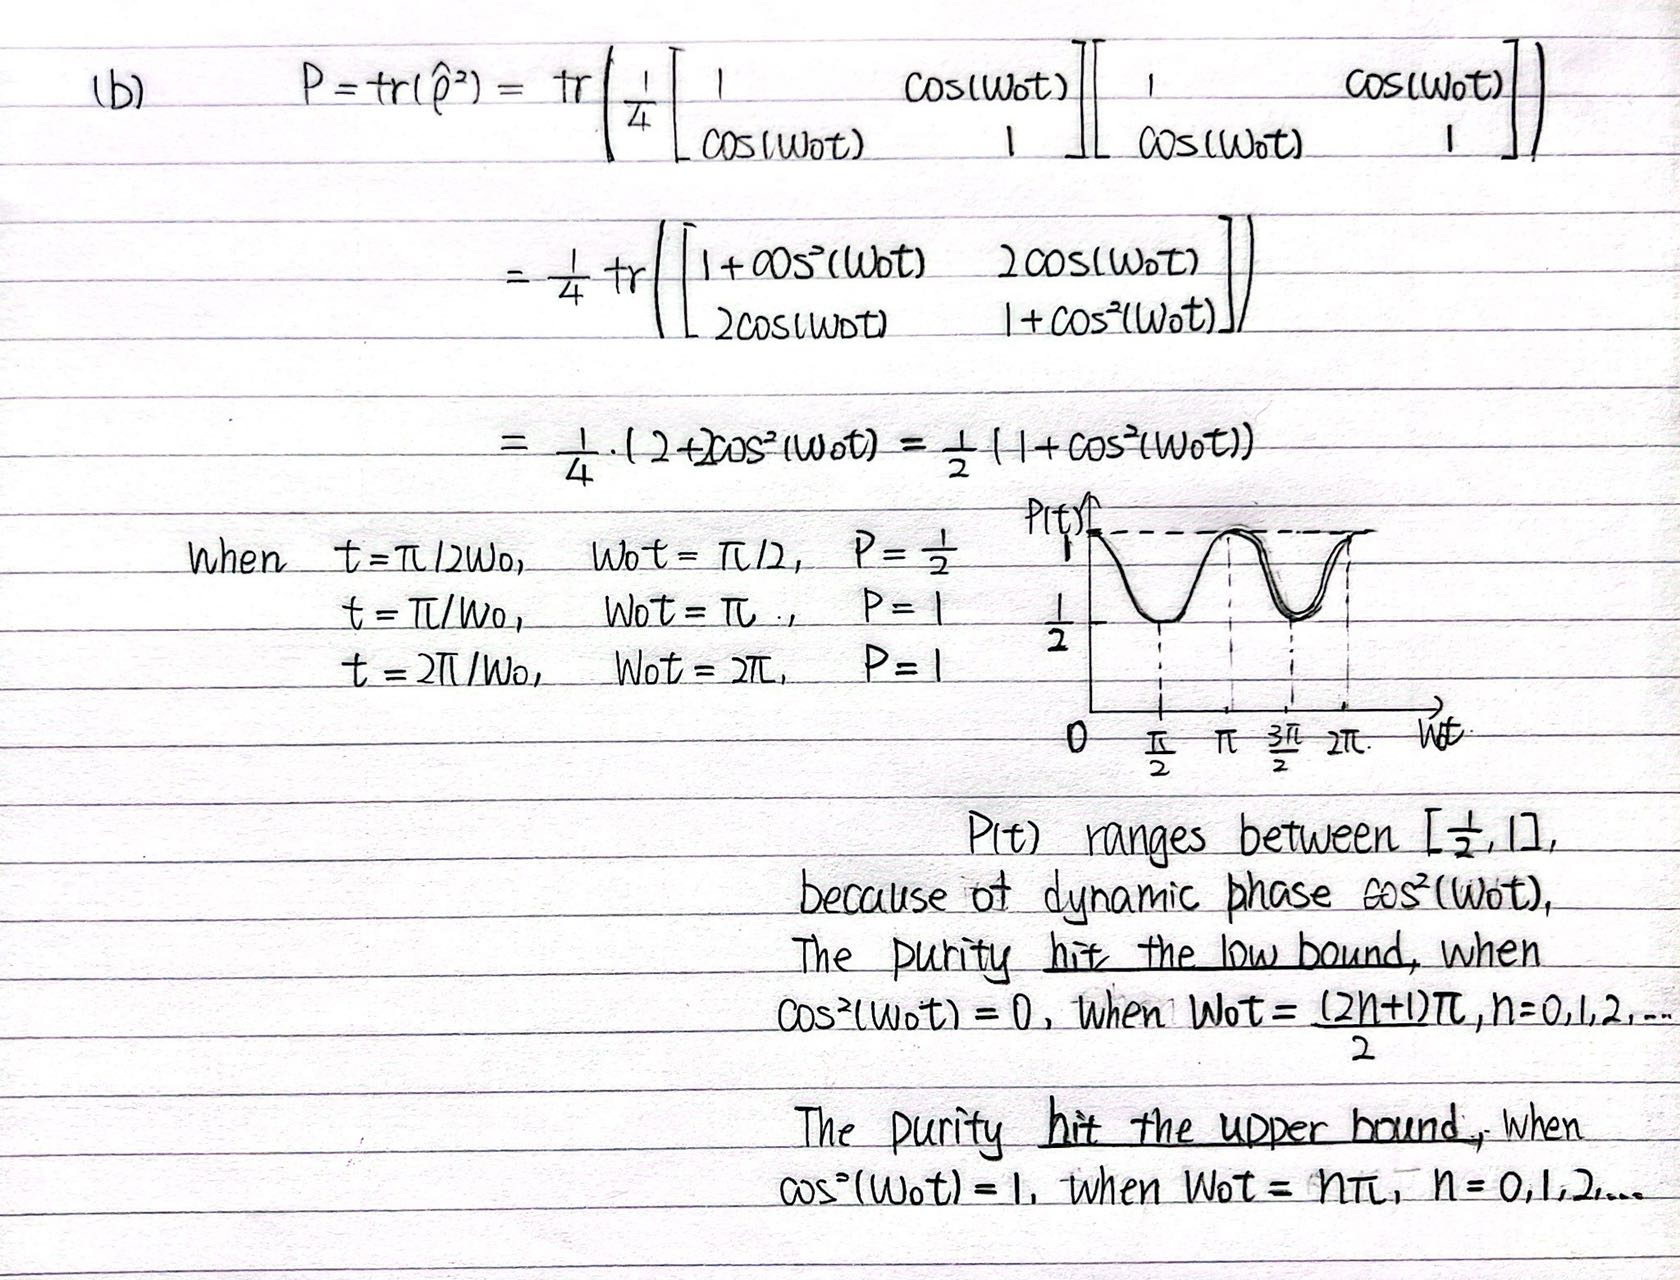 (b) P = tr(ρ̂²) = tr(1/4 [1 cos(W₀t) cos(W₀t) 1][1 cos(W₀t) cos(W₀t) 1])
= 1/4 tr([1+cos²(W₀t) 2cos(W₀t) 2cos(W₀t) 1+cos²(W₀t)])
= 1/4 · (2+2cos²(W₀t) = 1/2 (1+cos²(W₀t))
when t = π/2W₀, W₀t = π/2, P = 1/2
t = π/W₀, W₀t = π, P = 1
t = 2π/W₀, W₀t = 2π, P = 1
P(t)
1
1/2
0 π/2 π 3π/2 2π W₀t
P(t) ranges between [1/2, 1],
because of dynamic phase cos²(W₀t),
The purity hit the low bound, when
cos²(W₀t) = 0, when W₀t = (2n+1)π/2, n=0,1,2,...
The purity hit the upper bound, when
cos²(W₀t) = 1, when W₀t = nπ, n = 0,1,2,...